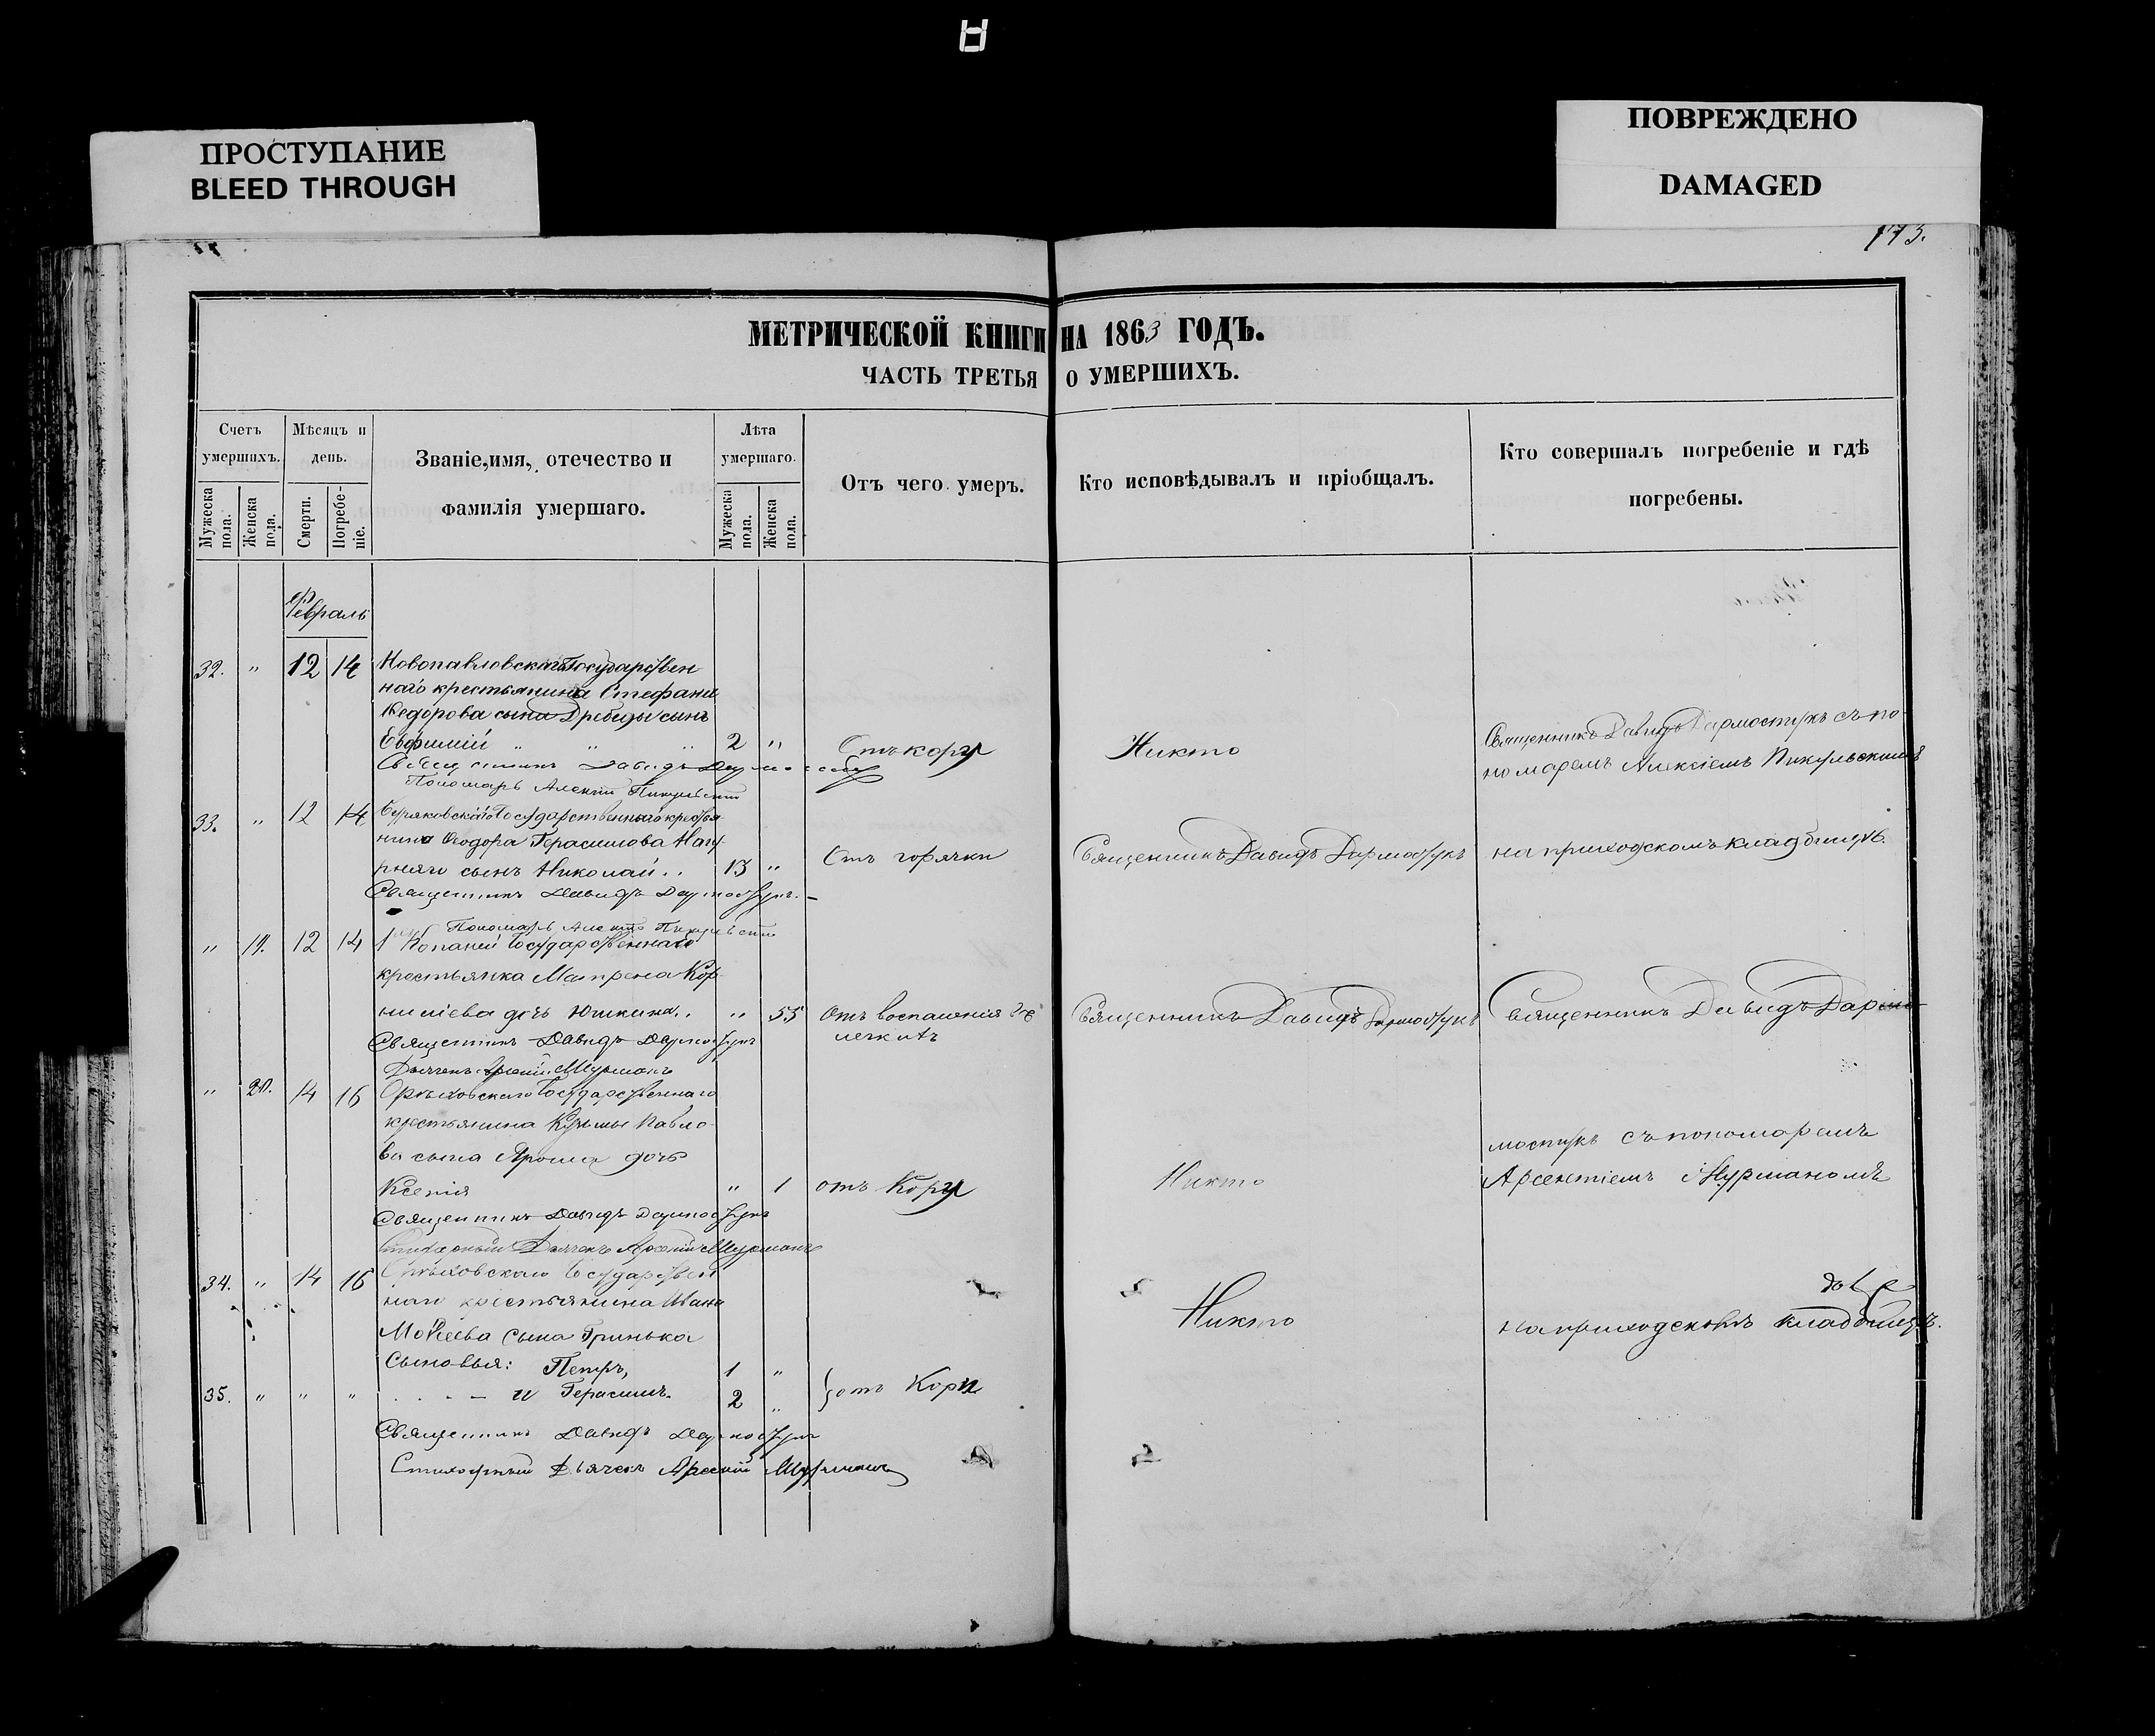 ПРОСТУПАНИЕ
BLEED THROUGH
ПОВРЕЖДЕНО
DAMAGED
173.
МЕТРИЧЕСКОЙ КНИГИ НА 1863 ГОДЪ.
ЧАСТЬ ТРЕТЬЯ О УМЕРШИХЪ.
Счетъ умершихъ.
Мужеска пола.
Женска пола.
Мѣсяцъ и день.
Смерти.
Погребе-ніе.
Званіе, имя, отечество и
фамилія умершаго.
Лѣта умершаго.
Мужеска пола.
Женска пола.
Отъ чего умеръ.
Кто исповѣдывалъ и пріобщалъ.
Кто совершалъ погребеніе и гдѣ
погребены.
Февраль
32. " 12 14 Новопавловскаго Государствен
наго крестьянина Стефана
Ѳедорова сына Дребеды сынъ
Евфимій " " " 2 " Отъ кору Никто
Священникъ Давидъ
Пономарь Алексій Пикульскій
Священникъ Давидъ Дармостукъ съ по-
номаремъ Алексіемъ Пикульскимъ
33. " 12 14 Государственнаго крестья
нина Ѳеодора Герасимова
сынъ Николай.. 13 " Отъ горячки Священникъ Давидъ Дармостукъ на приходскомъ кладбищѣ.
Священникъ Давидъ Дармостукъ.
Пономарь Алексій Пикульскій
" 19. 12 14 Копаней Государственнаго
крестьянка Матрена Кор-
нилiева дочь Юшкина.. " 55 Отъ воспаленія въ
легкихъ
Священникъ Давидъ Дармостукъ Священникъ Давидъ Дармо-
Священникъ Давидъ Дармостукъ
Дьячекъ Арсеній Мурманъ
" 20. 14 16 Орѣховскаго Государственнаго
крестьянина Кузьмы Павло-
ва сына Яроша дочь
Ксенія " 1 отъ Кору Никто
мостукъ съ пономаремъ
Арсентіемъ Мурманомъ
Священникъ Давидъ Дармостукъ
Стихарный Дьячекъ Арсеній Мурманъ
34. " 14 16 Орѣховскаго Государствен
наго крестьянина Ивана
Моѵсеева сына Гринька
Сыновья: Петръ, 1 " Никто на приходскомъ кладбищѣ.
35. " " " и Герасимъ. 2 " отъ Кори
Священникъ Давидъ Дармостукъ
Стихарный Дьячекъ Арсеній Мурманъ